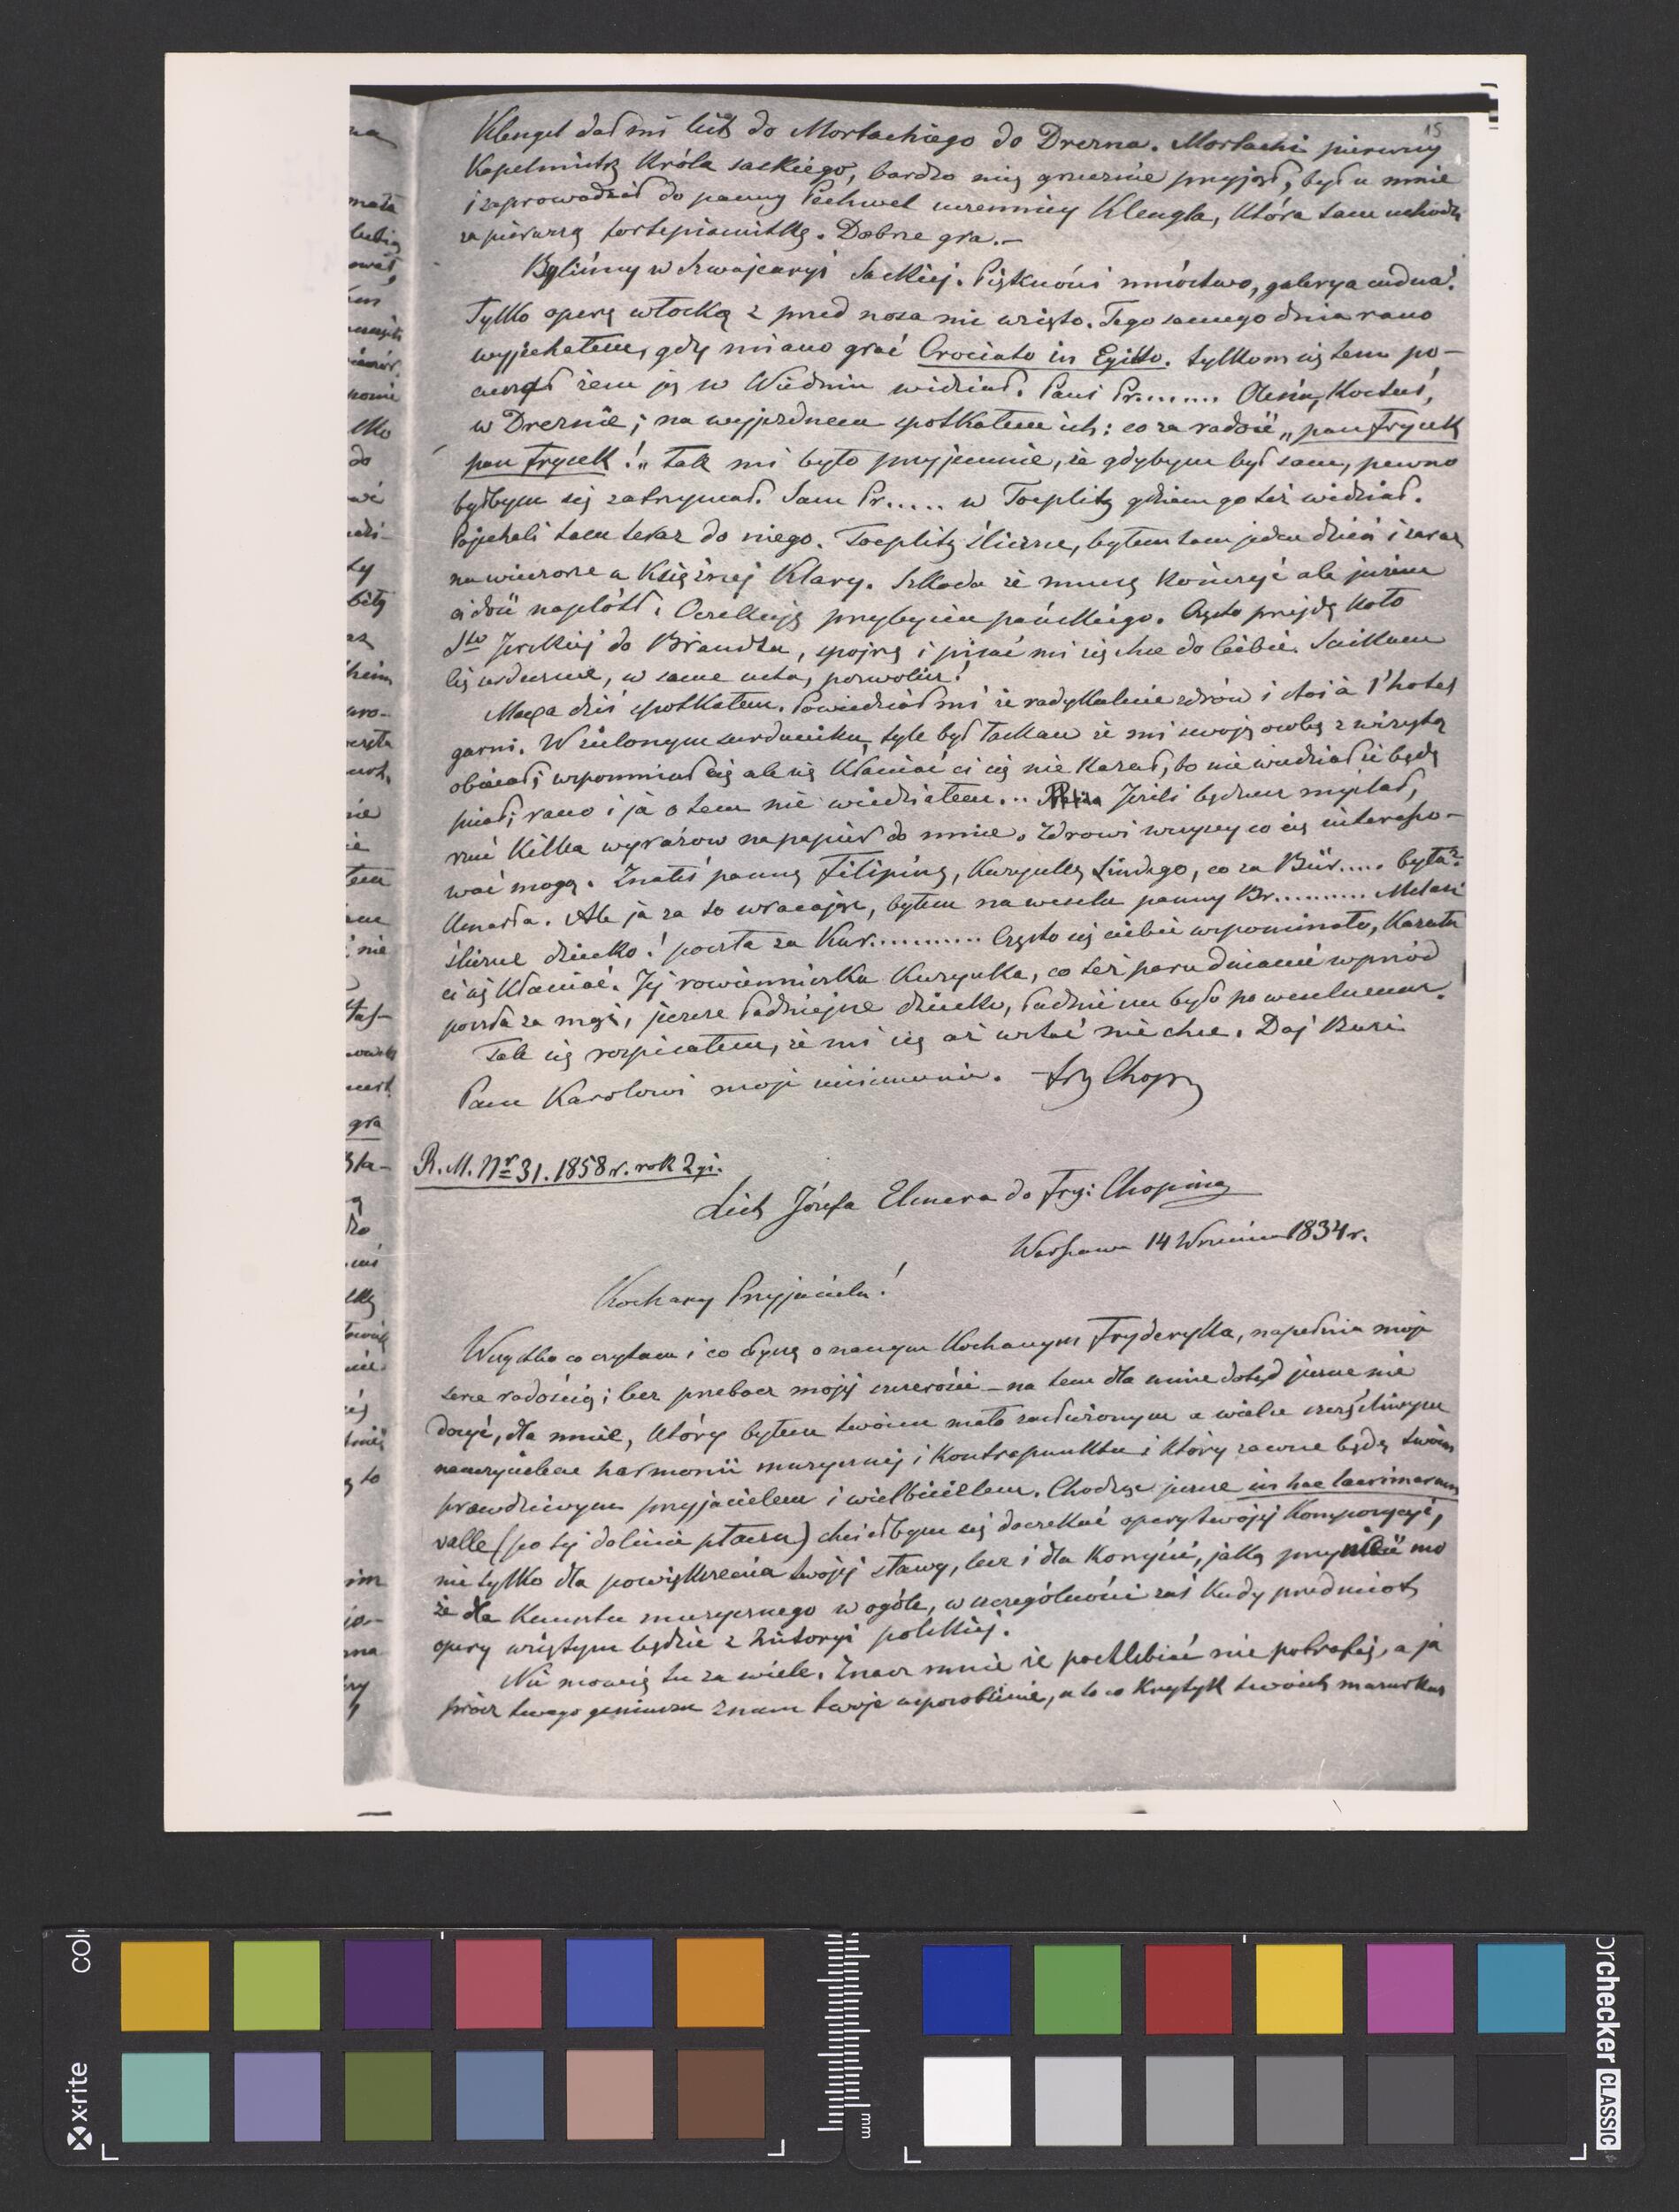 15
Klengel dał mi list do Morlachiego do Drezna. Morlachi pierwszy
Kapelmistrz Króla saskiego, bardzo mię grzecznie przyjął, był u mnie
i zaprowadził do panny Pechwel uczennicy Klengla, która tam uchodzi
za pierwszą fortepianistkę. Dobrze gra.—
Byliśmy w Szwajcaryi Saskiej. Piękności mnóstwo, galerya cudna!
Tylko operę włoską z przed nosa mi wzięto. Tego samego dnia rano
wyjechałem, gdy miano grać Crociato in Egitto. tylkom się tem po-
cieszył żem ją w Wiedniu widział. Pani Pr........ Olesia, Kostuś,
w Dreznie; na wyjezdnem spotkałem ich: co za radość „pan Frycek
pan Frycek!„ tak mi było przyjemnie, że gdybym był sam, pewno
byłbym się zatrzymał. Sam Pr..... w Toeplitz gdziem go też widział.
Pojechali tam teraz do niego. Toeplitz śliczne, byłem tam jeden dzień i zaraz
na wieczorze u Księżnej Klary. Szkoda że muszę kończyć ale jużem
ci dość naplótł. Oczekuję przybycia pańskiego. Często przejdę koło
Sto Jerskiej do Brandta, spojrzę i pisać mi się chce do Ciebie. Sciskam
Cię serdecznie, w same usta, pozwolisz!
Maxa dziś spotkałem. Powiedział mi że radykalnie zdrów i stoi à l'hotel
garni. W zielonym surduciku, tyle był łaskaw że mi swoją osobę z wizytą
obiecał; wspomniał cię ale się kłaniać ci się nie kazał, bo nie wiedział że będę
pisał; rano i ja o tem nie wiedziałem... Jeżeli będziesz myślał,
rzuć kilka wyrazów na papier do mnie. Zdrowi wszyscy co cię interesso-
wać mogą. Znałeś pannę Filipinę, kuzynkę Lindego, co za Bür..... była?
Umarła. Ale ja za to wracając, byłem na weselu panny Br.......... Melasi
śliczne dziecko! poszła za Kur........... Często cię ciebie wspominała, kazała
ci się kłaniać. Jej rowienniczka kuzynka, co też paru dniami wprzód
poszła za mąż, jeszcze ładniejsze dziecko, ładnie im było po weselnemu.
Tak się rozpisałem, że mi się aż wstać nie chce. Daj Buzi.
Panu Karolowi moje uściśnienie. Fry Chopin
R. M. Nr 31. 1858 r. rok 2gi.
List Józefa Elsnera do Fry: Chopina
Warszawa 14 Września 1834 r.
Kochany Przyjacielu!
Wszystko co czytam i co słyszę o naszym Kochanym Fryderyku, napełnia moje
serce radością; lecz przebacz mojej szczerości — na tem dla mnie dotąd jeszcze nie
dosyć, dla mnie, który byłem twoim mało zasłużonym a wielce szczęśliwym
nauczycielem harmonii muzycznej i kontrapunktu i który zawsze będę twoim
prawdziwym przyjacielem i wielbicielem. Chodząc jeszcze in hac lacrimarum
valle (po tej dolinie płaczu) chciałbym się doczekać opery twojej kompozycyi,
nie tylko dla powiększenia twojej sławy, lecz i dla korzyści, jaką przynieść mo
że dla kunsztu muzycznego w ogóle, w szczególności zaś kiedy przedmiot
opery wziętym będzie z historyi polskiej.
Nie mówię tu za wiele. Znasz mnie że pochlebiać nie potrafię, a ja
prócz twego geniuszu znam twoje usposobienie, a to co krytyk twoich mazurków